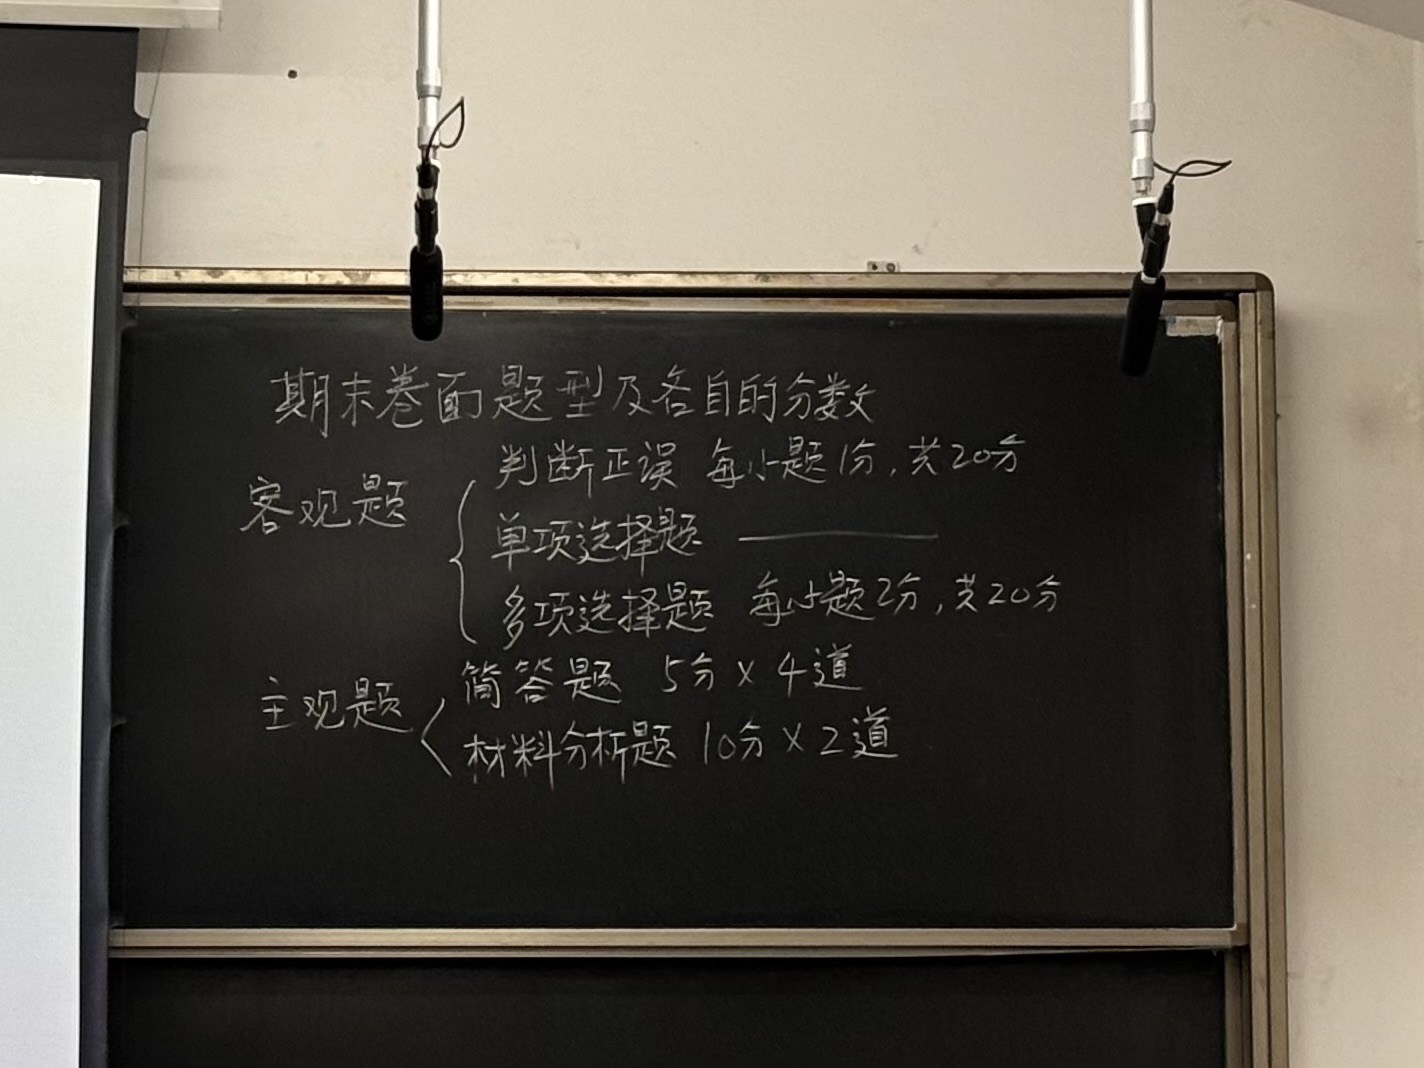 期末卷面题型及各自的分数
客观题
判断正误 每小题1分,共20分
单项选择题 ———
多项选择题 每小题2分,共20分
主观题
简答题 5分×4道
材料分析题 10分×2道